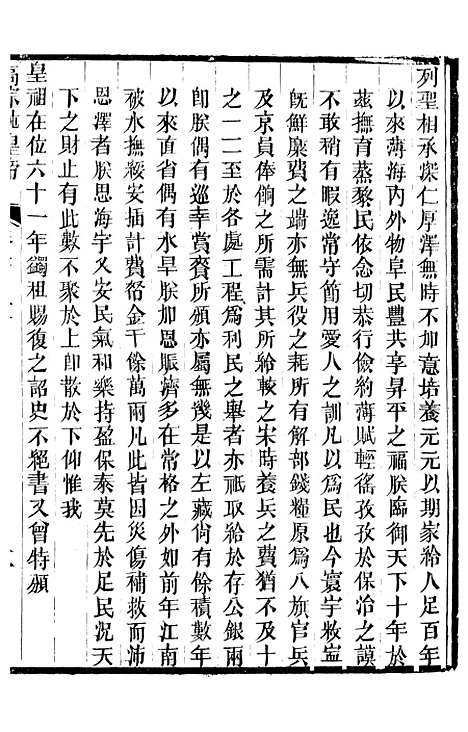 列聖相承深仁厚澤無時不加意培養元元以期家給人足百年
以來薄海內外物阜民豐共享昇平之福朕臨御天下十年於
茲撫育蒸黎民依念切恭行儉約薄賦輕徭孜孜於保治之謨
不敢稍有暇逸常守節用愛人之訓凡以爲民也今寰宇敉寍
旣鮮糜費之端亦無兵役之耗所有解部錢糧原爲八旗官兵
及京員俸餉之所需計其所給較之宋時養兵之費猶不及十
之一二至於各處工程爲利民之舉者亦祇取給於存公銀兩
卽朕偶有巡幸賞賚所頒亦屬無幾是以左藏尙有餘積數年
以來直省偶有水旱朕加恩賑濟多在常格之外如前年江南
被水撫綏安插計費帑金千餘萬兩凡此皆因災傷補救而沛
恩澤者朕思海宇乂安民氣和樂持盈保泰莫先於足民況天
下之財止有此數不聚於上卽散於下仰惟我
皇祖在位六十一年蠲租賜復之詔史不絕書又曾特頒
高宗純皇帝